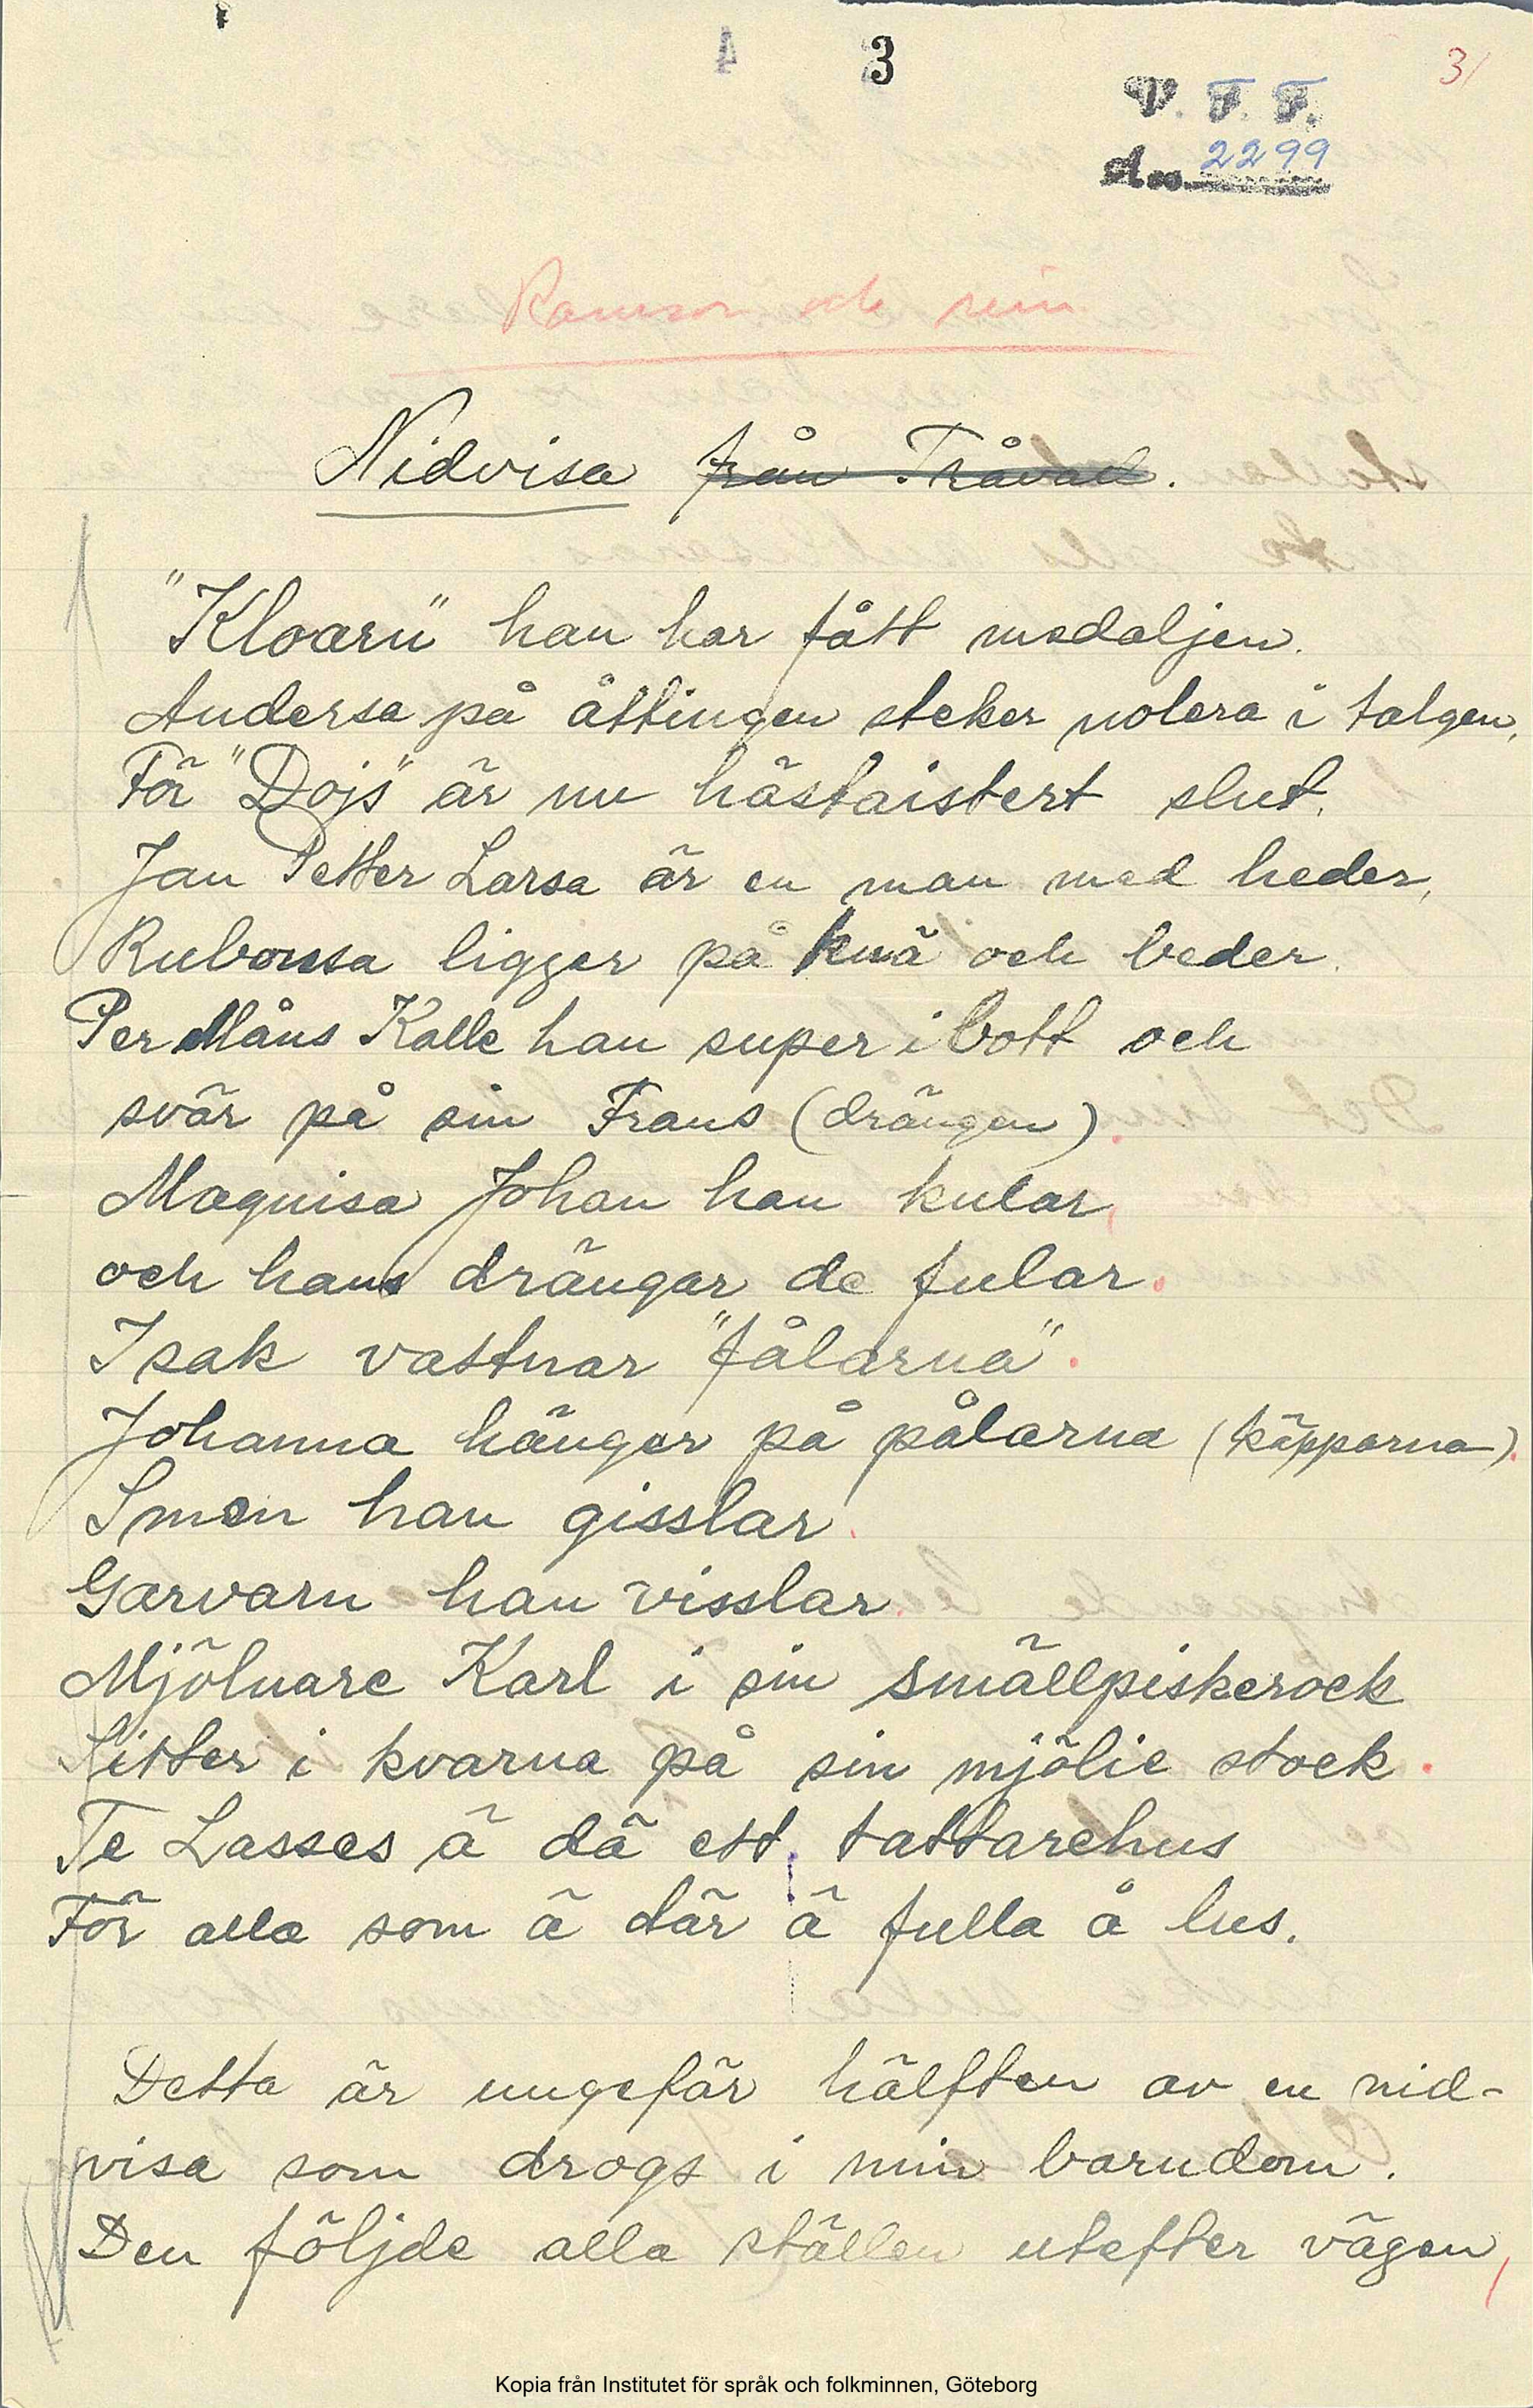 4 3 3/
V. F. F.
A.. 2299
Ramsor och rim
Nidvisa från Tråvad.
"Kloarn" han har fått medaljen.
Andersa på åttingen steker nolera i talgen,
För "Dojs" är nu hästaistert slut.
Jan Petter Larsa är en man med heder,
ligger på knä och beder.
Per Måns Kalle han super i bott och
svär på sin Frans (drängen).
Magnisa Johan han kular,
och hans drängar de fular.
Isak vattnar "fålarna".
Johanna hänger på pålarna (käpparna).
Smen han gisslar.
Garvarn han visslar.
Mjölnare Karl i sin smällpiskerock
Sitter i kvarna på sin mjölie stock.
Te Lasses ä dä ett tattarehus
För alla som ä där ä fulla å lus.
Detta är ungefär hälften av en nid-
visa som drogs i min barndom.
Den följde alla ställen utefter vägen,
Kopia från Institutet för språk och folkminnen, Göteborg